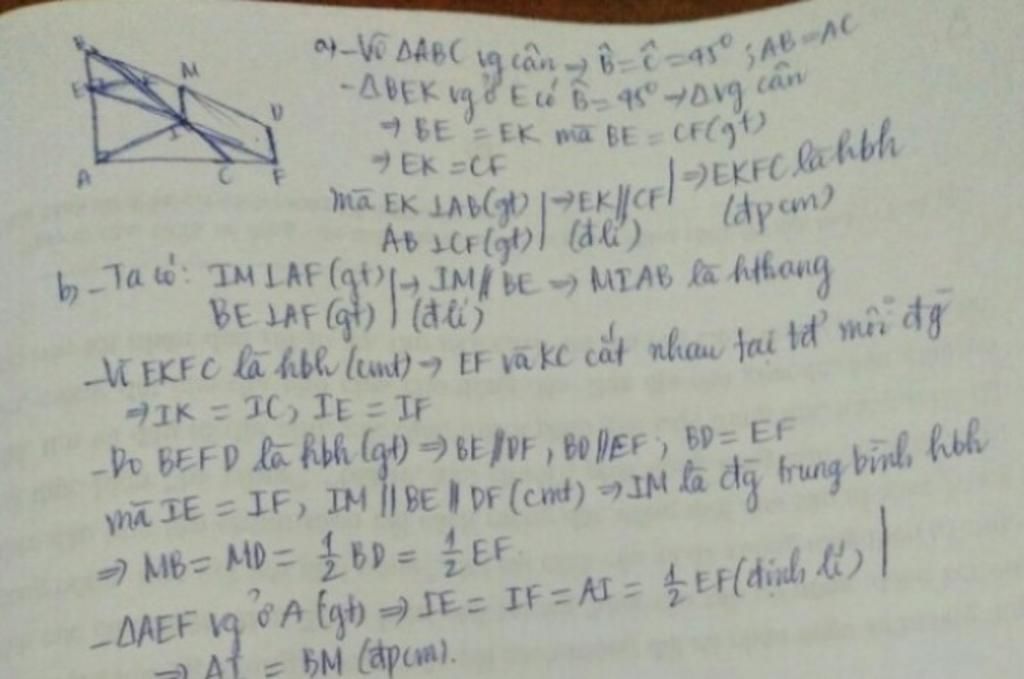 B
E
M
I
D
A
C
F
a) - Vì ΔABC vg cân → B̂ = Ĉ = 45° ; AB = AC
- ΔBEK vg ở E có B̂ = 45° → Δ vg cân
⇒ BE = EK mà BE = CF (gt)
⇒ EK = CF
mà EK ⊥ AB (gt) | ⇒ EK // CF | ⇒ EKFC là hbh
AB ⊥ CF (gt) | (đlí) (đpcm)
b) - Ta có: IM ⊥ AF (gt) | → IM // BE ⇒ MIAB là hthang
BE ⊥ AF (gt) | (đlí)
- Vì EKFC là hbh (cmt) → EF và KC cắt nhau tại tđ mỗi đg
⇒ IK = IC, IE = IF
- Do BEFD là hbh (gt) ⇒ BE // DF, BD // EF, BD = EF
mà IE = IF, IM // BE // DF (cmt) ⇒ IM là đg trung bình hbh
⇒ MB = MD = 1/2 BD = 1/2 EF
- ΔAEF vg ở A (gt) ⇒ IE = IF = AI = 1/2 EF (định lí) |
⇒ AI = BM (đpcm).